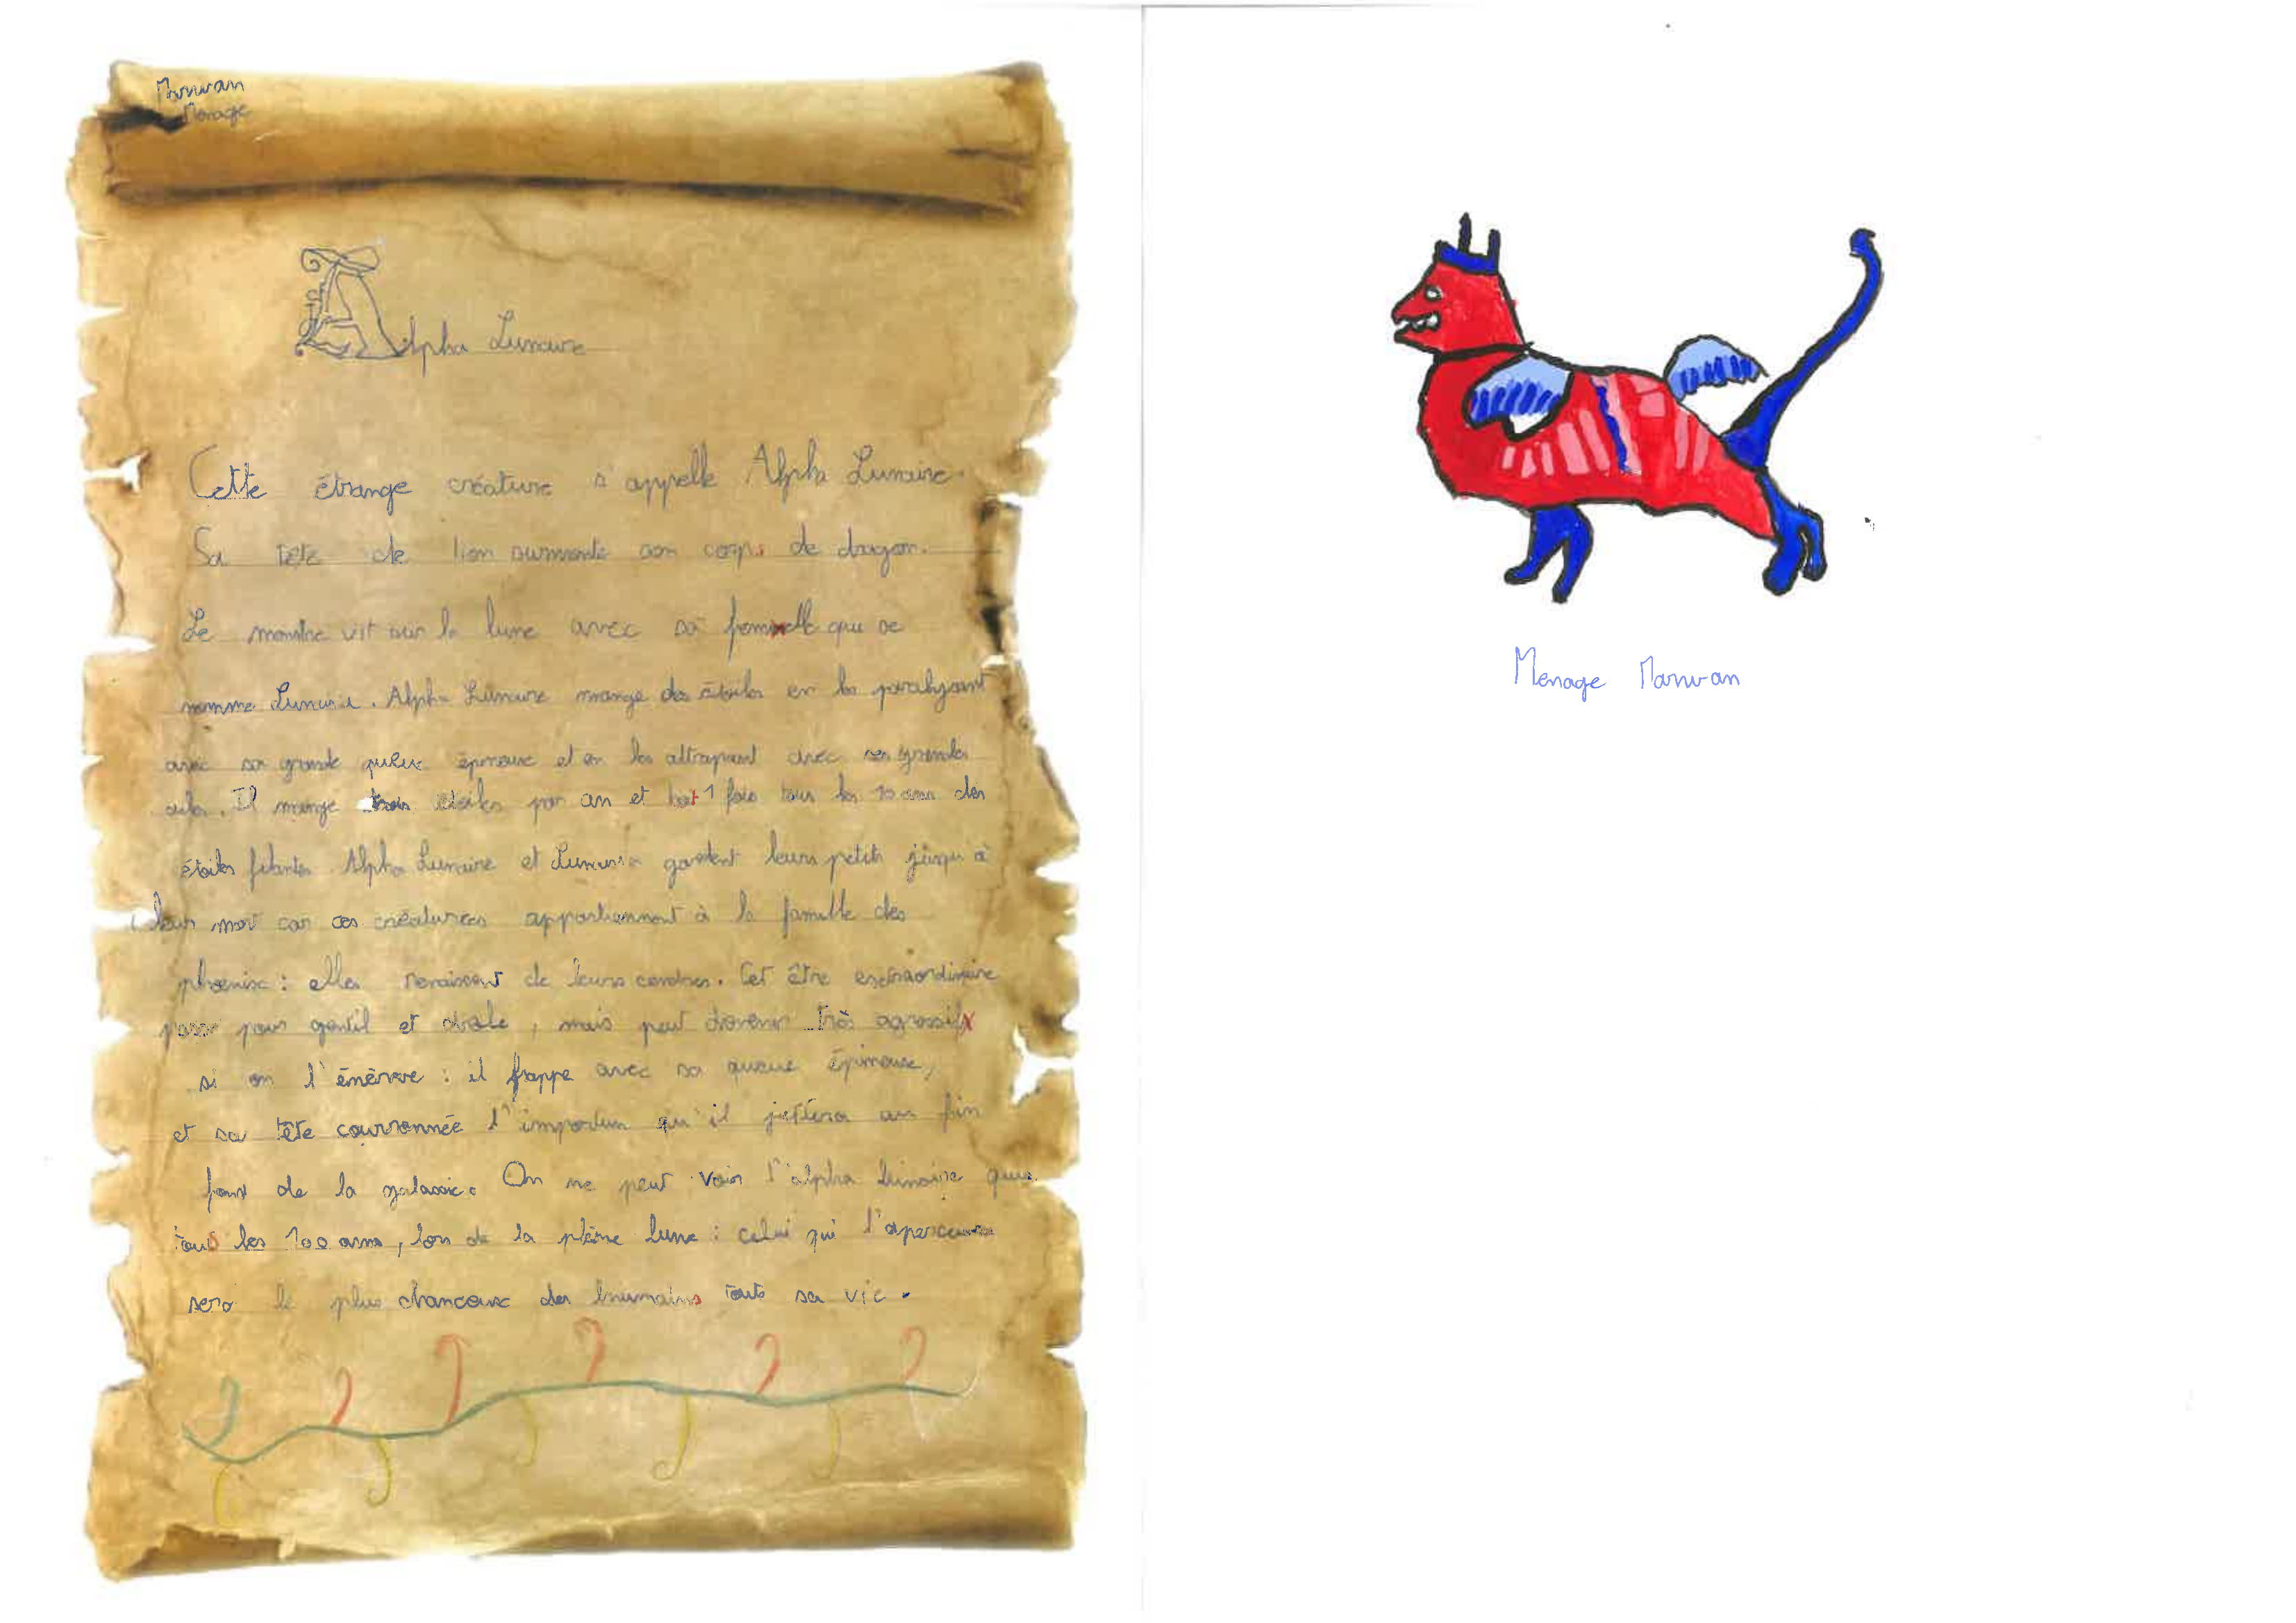 Marwan
Menage
Alpha Lunaire
Cette étrange créature s'appelle Alpha Lunaire.
Sa tête de lion surmonte son corps de dragon.
Le monstre vit sur la lune avec sa femelle qui se
nomme. Alpha Lunaire mange des étoiles en les paralysant
avec sa grande queue épineuse et en les attrapant avec ses grandes
ailes. Il mange trois étoiles par an et 1 fois tous les 10 ans des
étoiles filantes. Alpha Lunaire et gardent leurs petits jusqu'à
leur mort car ces créatures appartiennent à la famille des
phoenix : elles renaissent de leurs cendres. Cet être extraordinaire
passe pour gentil et drôle, mais peut devenir très agressif
si on l'énerve : il frappe avec sa queue épineuse,
et sa tête couronnée l'importun qu'il jettera au fin
fond de la galaxie. On ne peut voir l'alpha lunaire que
tous les 100 ans, lors de la pleine lune : celui qui l'apercevra
sera le plus chanceux des humains toute sa vie.
Menage Marwan